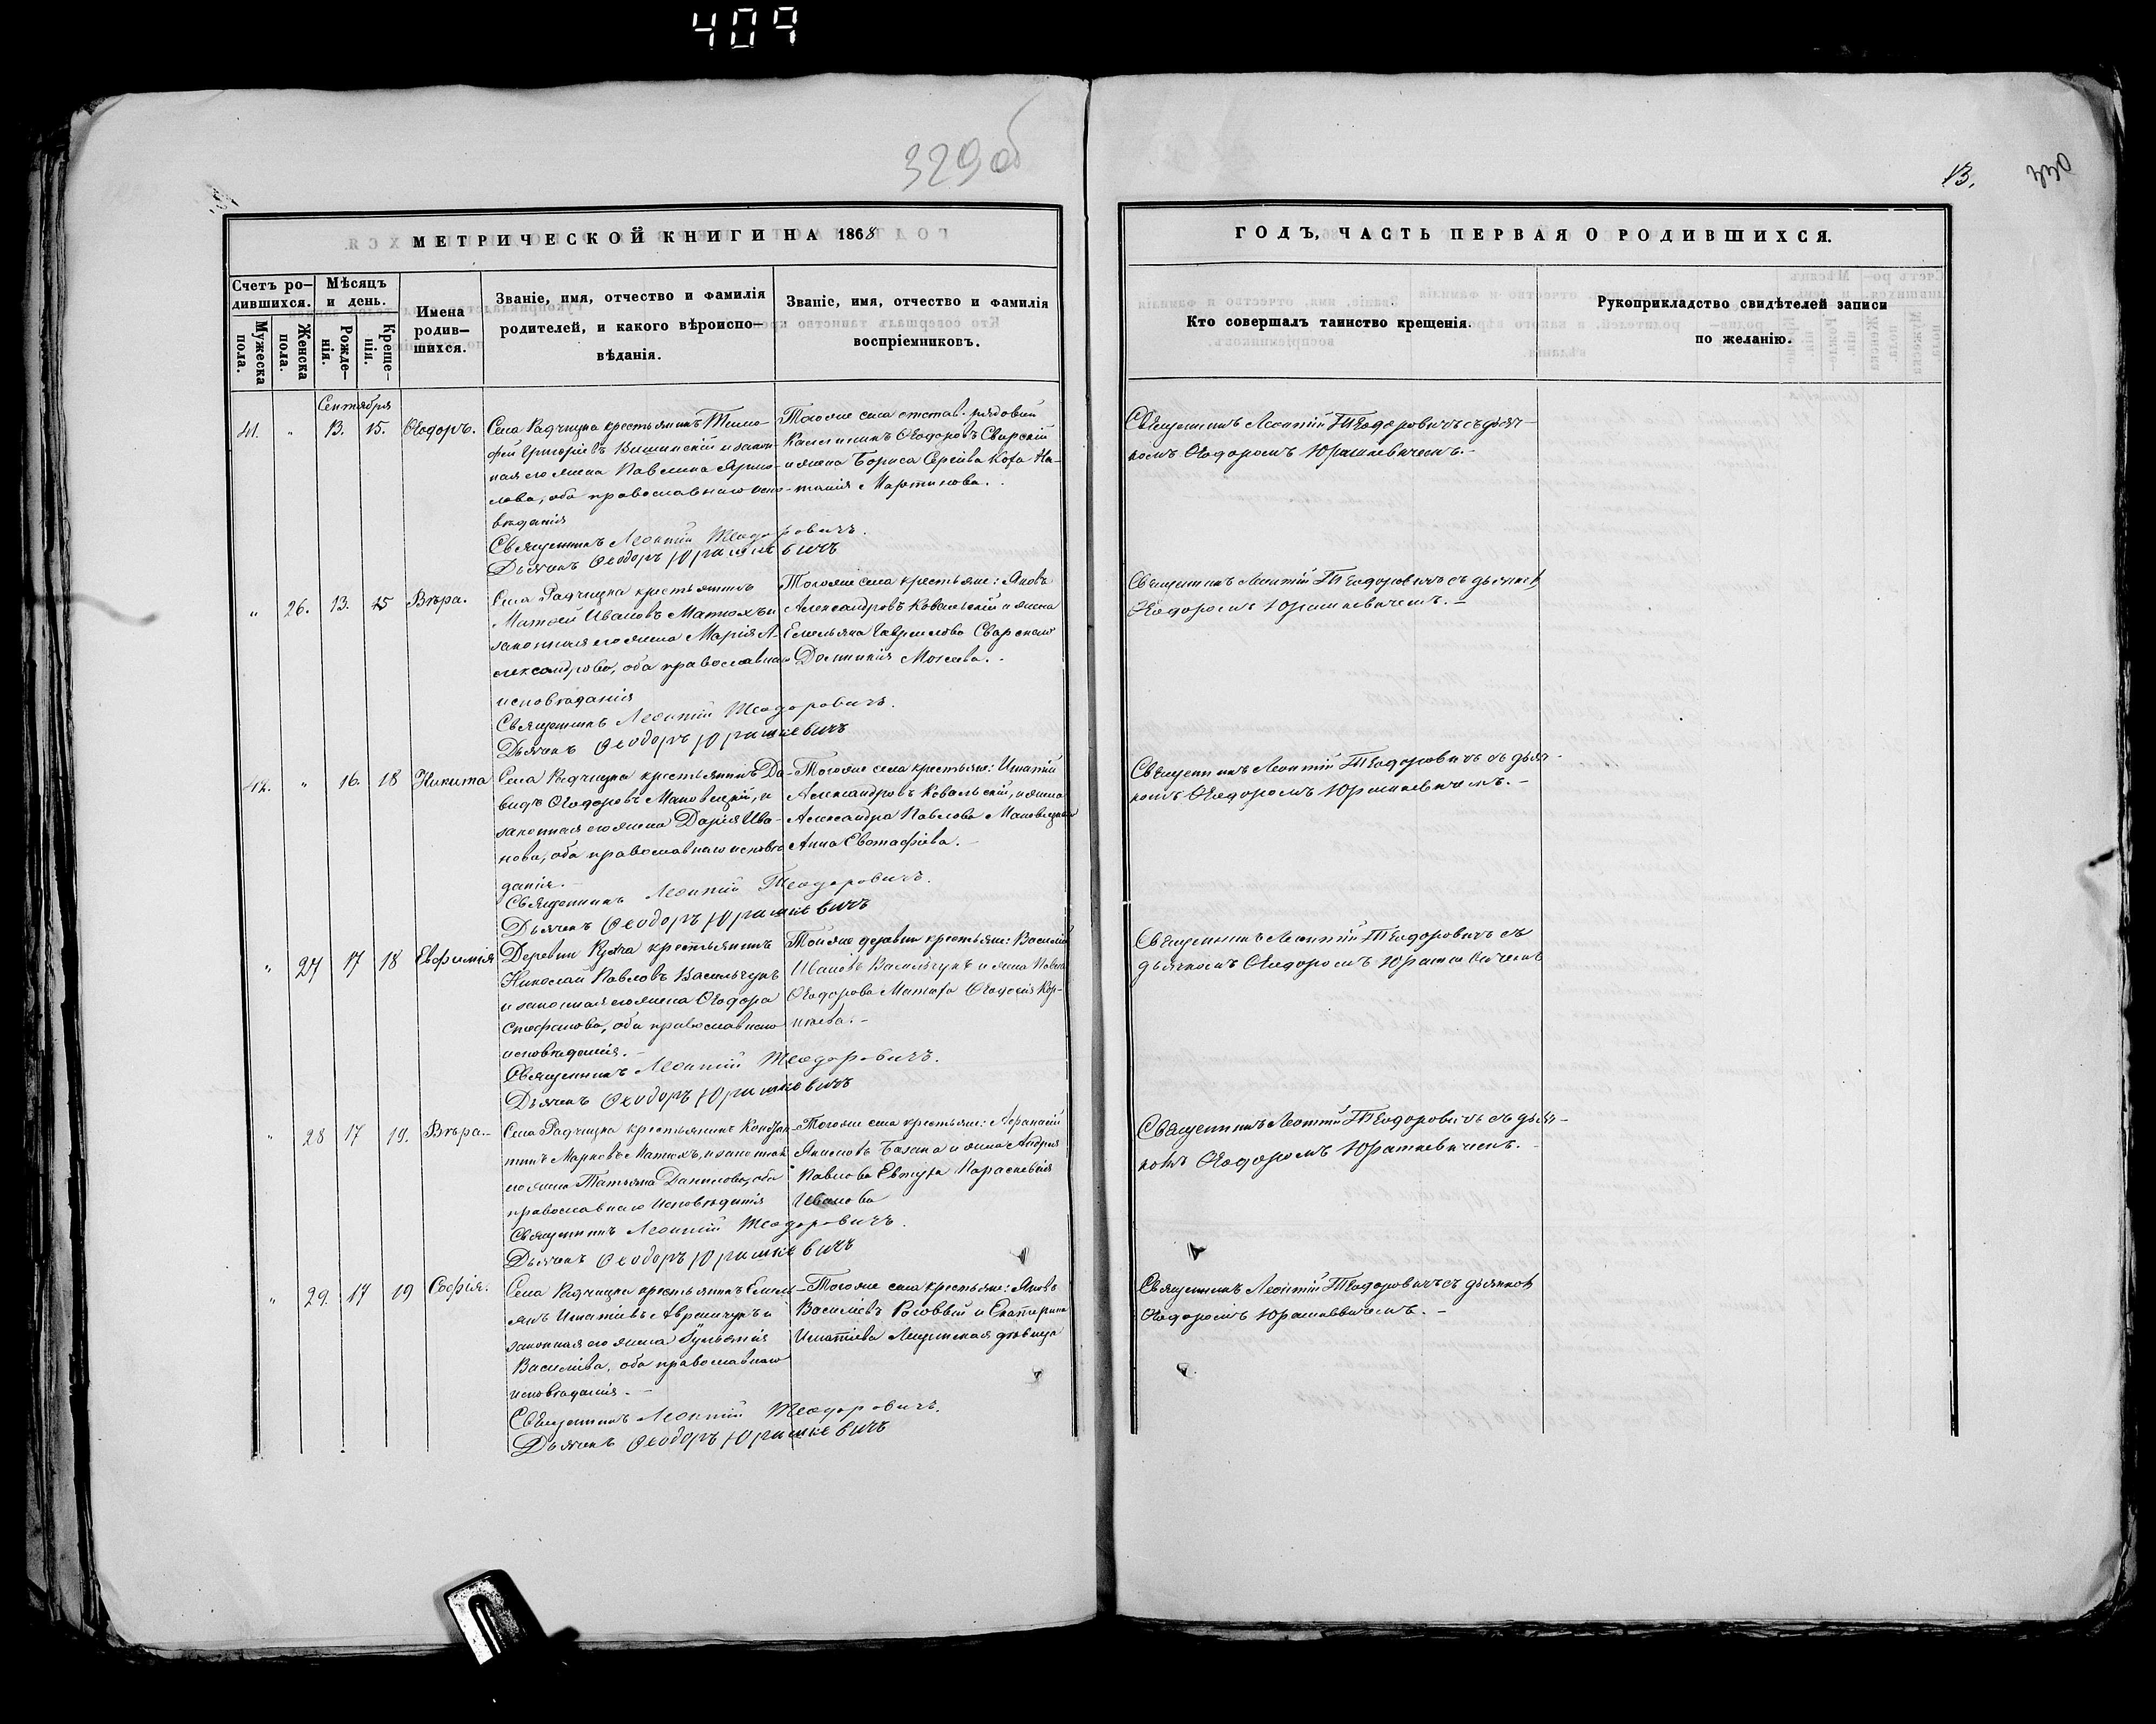 409
329об
13.
330
МЕТРИЧЕСКОЙ КНИГИ НА 1868
ГОДЪ, ЧАСТЬ ПЕРВАЯ О РОДИВШИХСЯ.
Счетъ ро-
дившихся.
Мѣсяцъ
и день.
Мужеска
пола.
Женска
пола.
Рожде-
нія.
Креще-
нія.
Имена
родив-
шихся.
Званіе, имя, отчество и фамилія
родителей, и какого вѣроиспо-
вѣданія.
Званіе, имя, отчество и фамилія
воспріемниковъ.
Кто совершалъ таинство крещенія.
Рукоприкладство свидѣтелей записи
по желанію.
Сентября
41. " 13. 15. Ѳеодоръ.
Села Радчицка крестьянинъ Тимо-
фей Григоріевъ Вишинскій и закон-
ная его жена Павлина
оба православнаго испо-
вѣданія
Священникъ Леонтій Теодоровичъ.
Дьячекъ Ѳеодоръ Юрашкевичъ
Тогоже села отстав. рядовый
Ѳеодоровъ Сварскій
и жена Бориса Сергіева
Мартинова.
Священникъ Леонтій Теодоровичъ съ дьяч-
комъ Ѳеодоромъ Юрашкевичемъ.-
" 26. 13. 15 Вѣра.
Села Радчицка крестьянинъ
Матѳей Ивановъ Матюхъ и
законная его жена Марія А-
лександрова, оба православнаго
исповѣданія
Священникъ Леонтій Теодоровичъ.
Дьячекъ Ѳеодоръ Юрашкевичъ
Тогоже села крестьяне: Яковъ
Александровъ Ковальскій и жена
Емельяна Гаврилова Сварскаго
Домникія Мокеева.
Священникъ Леонтій Теодоровичъ съ дьячкомъ
Ѳеодоромъ Юрашкевичемъ.-
42. " 16. 18 Никита
Села Радчицка крестьянинъ Да-
видъ Ѳеодоровъ Маковецкій, и
законная его жена Дарія Ива-
нова, оба православнаго исповѣ-
данія.
Священникъ Леонтій Теодоровичъ.
Дьячекъ Ѳеодоръ Юрашкевичъ
Тогоже села крестьяне: Игнатій
Александровъ Ковальскій, и жена
Александра Павлова Маковецкаго
Анна Евстафіева.-
Священникъ Леонтій Теодоровичъ съ дьяч-
комъ Ѳеодоромъ Юрашкевичемъ.-
" 27 17 18 Евфимія
Деревни крестьянинъ
Николай Павловъ Васильчукъ
и законная его жена Ѳеодора
Стефанова, оба православнаго
исповѣданія.-
Священникъ Леонтій Теодоровичъ.
Дьячекъ Ѳеодоръ Юрашкевичъ
Тойже деревни крестьяне: Василій
Ивановъ Васильчукъ и жена Павла
Ѳеодорова Ѳеодосія Кор-
нѣева.-
Священникъ Леонтій Теодоровичъ съ
дьячкомъ Ѳеодоромъ Юрашкевичемъ
" 28 17 19. Вѣра.-
Села Радчицка крестьянинъ Кондра-
тій Марковъ Матюхъ, и законная
его жена Татьяна Данилова, оба
православнаго исповѣданія
Священникъ Леонтій Теодоровичъ.
Дьячекъ Ѳеодоръ Юрашкевичъ
Тогоже села крестьяне: Афанасій
Акимовъ Базана и жена Андрея
Павлова Евтуха Параскевія
Иванова
Священникъ Леонтій Теодоровичъ съ дьяч-
комъ Ѳеодоромъ Юрашкевичемъ.-
" 29. 17 19 Софія.
Села Радчицка крестьянинъ Емель-
янъ Игнатіевъ Аврамчукъ и
законная его жена Іуліанія
Василіева, оба православнаго
исповѣданія.-
Священникъ Леонтій Теодоровичъ.
Дьячекъ Ѳеодоръ Юрашкевичъ
Тогоже села крестьяне: Яковъ
Василіевъ и Екатерина
Игнатіева дѣвица
Священникъ Леонтій Теодоровичъ съ дьячкомъ
Ѳеодоромъ Юрашкевичемъ.-